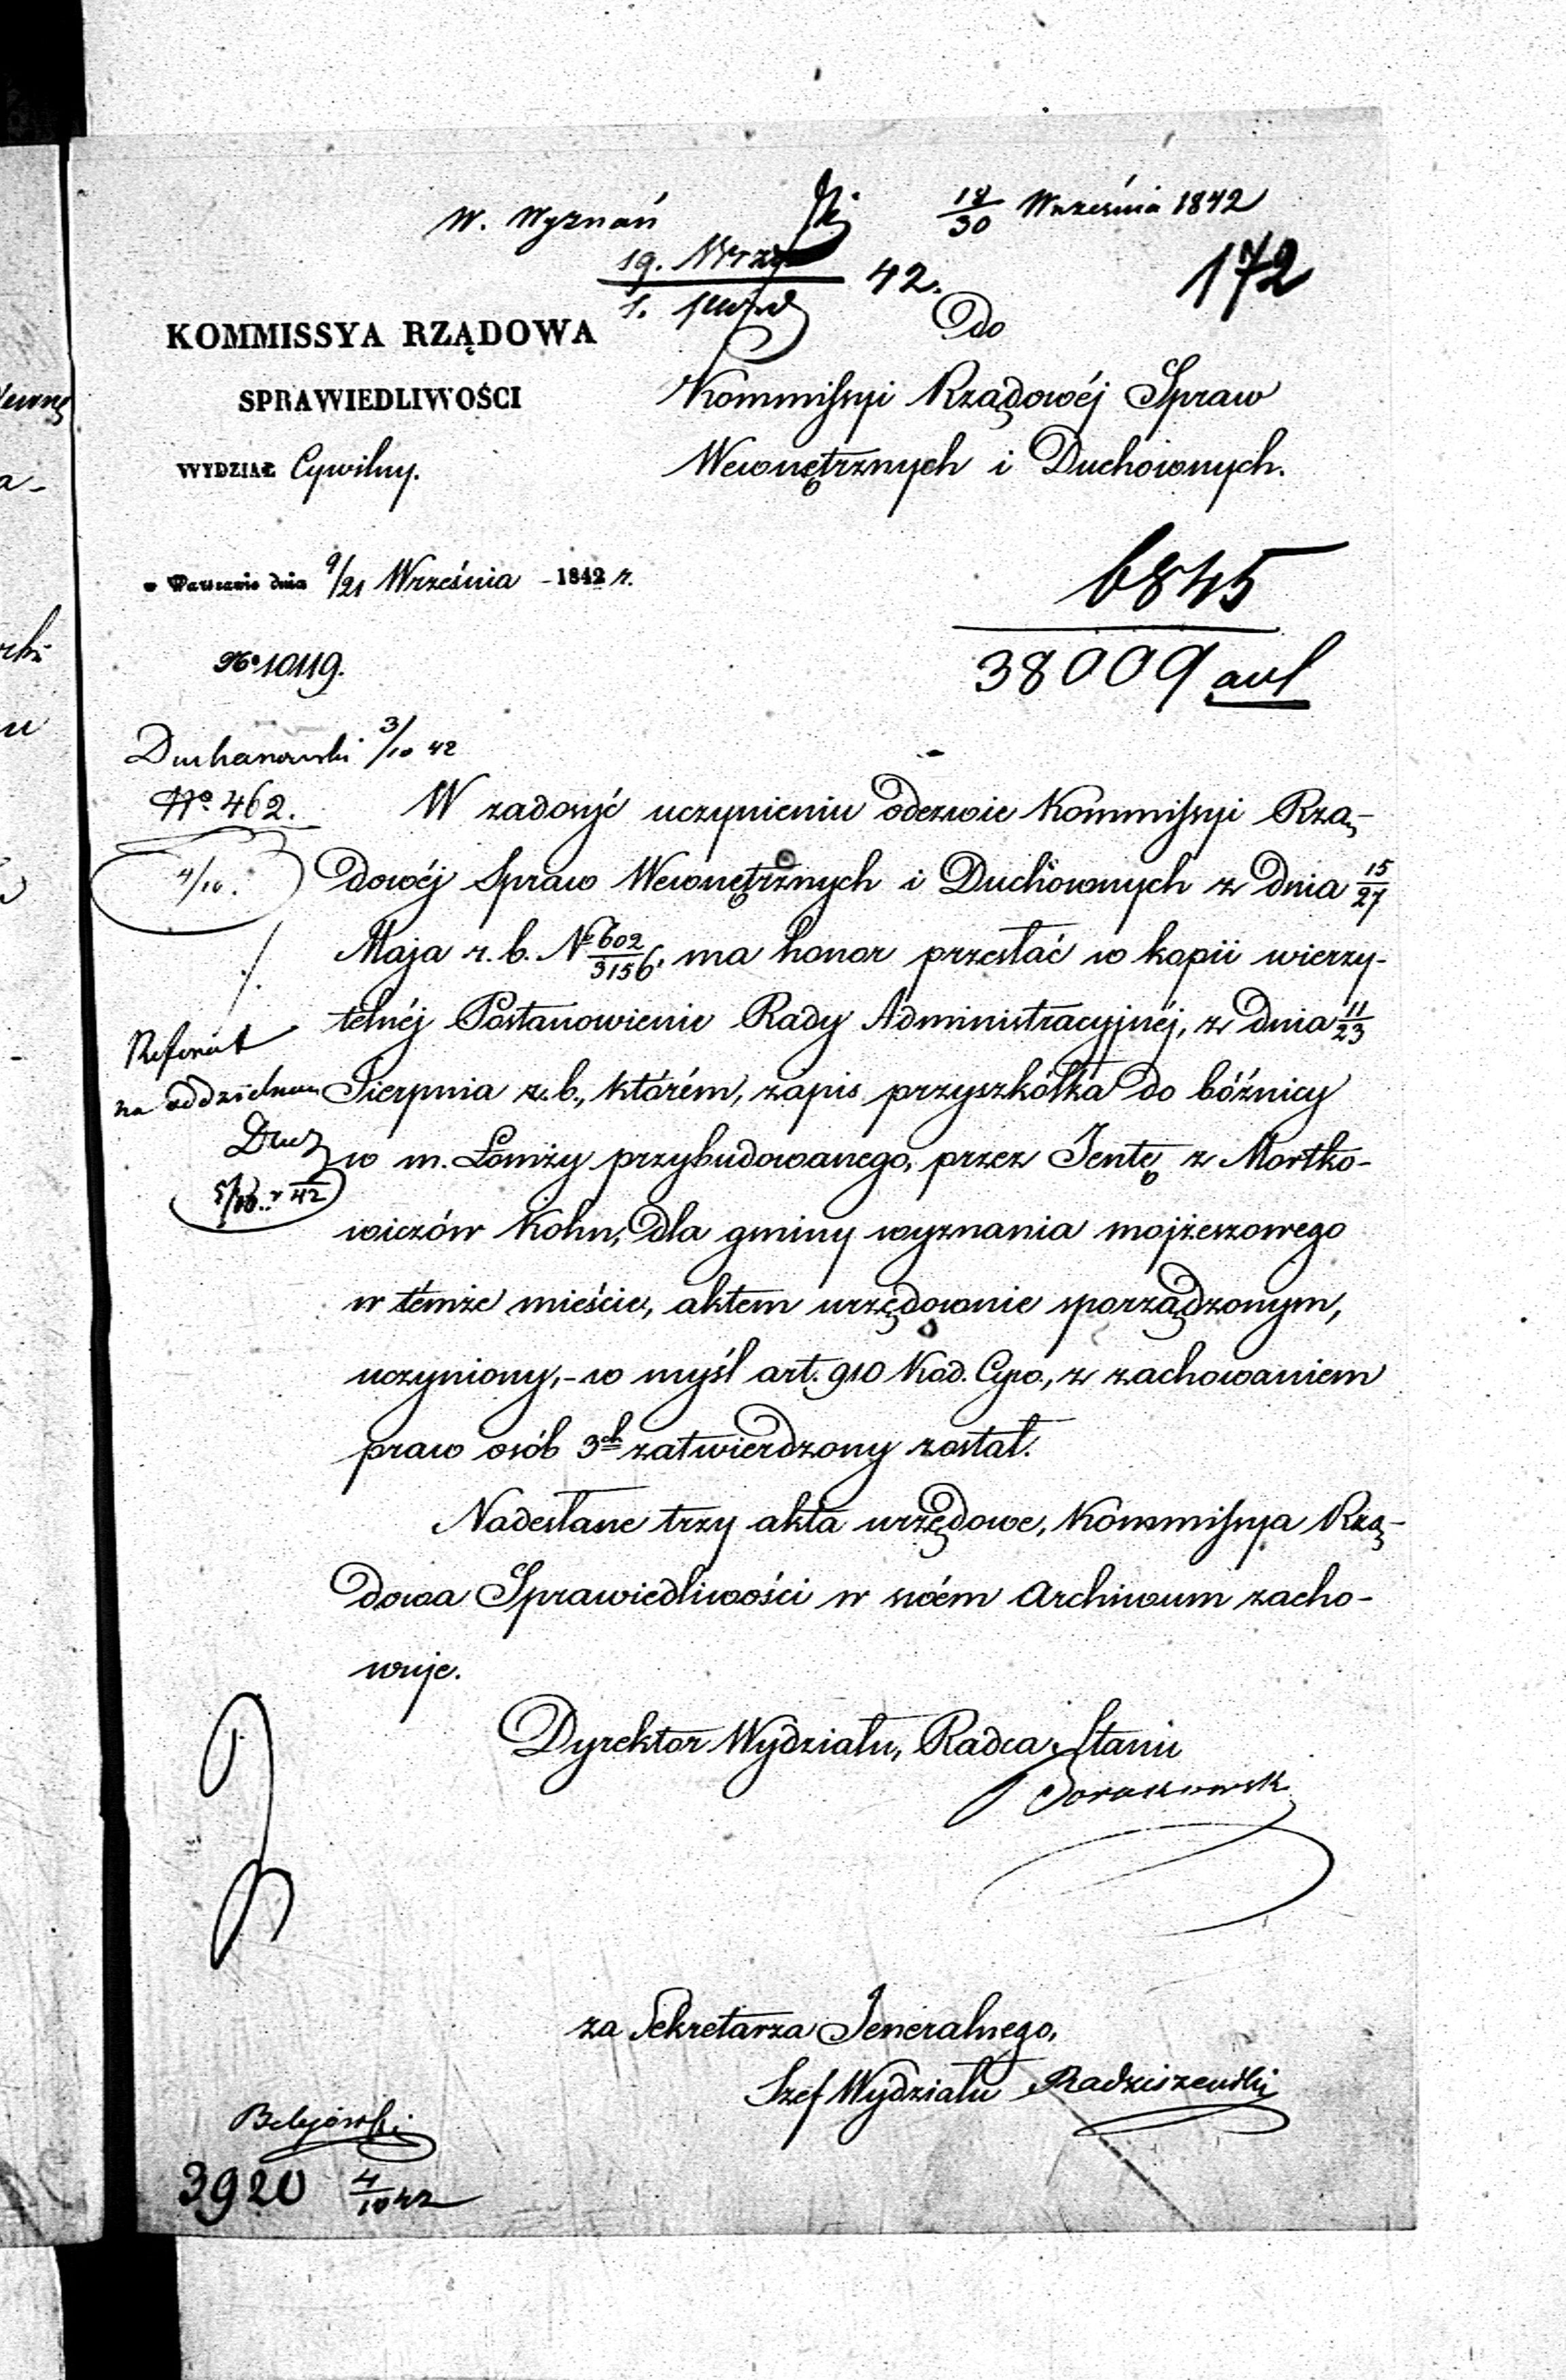 W. Wyznań
18/30 Września 1842
19.
1.
42.
172
KOMMISSYA RZĄDOWA
SPRAWIEDLIWOŚCI
WYDZIAŁ Cywilny.
w Warszawie dnia 9/21 Września 1842 r.
No 10119.
Do
Kommissyi Rządowéj Spraw
Wewnętrznych i Duchownych.
6845
38009
3/10 42
No. 462.
4/10.
W zadosyć uczynieniu odezwie Kommissyi Rzą-
dowéj Spraw Wewnętrznych i Duchownych z dnia 15/27
Maja r. b. No 602/3156, ma honor przesłać w kopii wierzy-
telnéj Postanowienie Rady Administracyjnéj, z dnia 11/23
Sierpnia r. b., którém, zapis przyszkółka do bóźnicy
w m. Łomży przybudowanego, przez Jentę z Mortko-
wiczów Kohn, dla gminy wyznania mojżeszowego
w témże mieście, aktem urzędownie sporządzonym,
uczyniony,- w myśl art. 910 Kod. Cyw., z zachowaniem
praw osób 3ch zatwierdzony został.
Nadesłane trzy akta urzędowe, Kommissya Rzą-
dowa Sprawiedliwości w swém Archiwum zacho-
wuje.
Referat
na oddzielnem
5/10 42
Dyrektor Wydziału, Radca Stanu
za Sekretarza Jeneralnego,
Szef Wydziału Radziszewski
3920 4/10 42